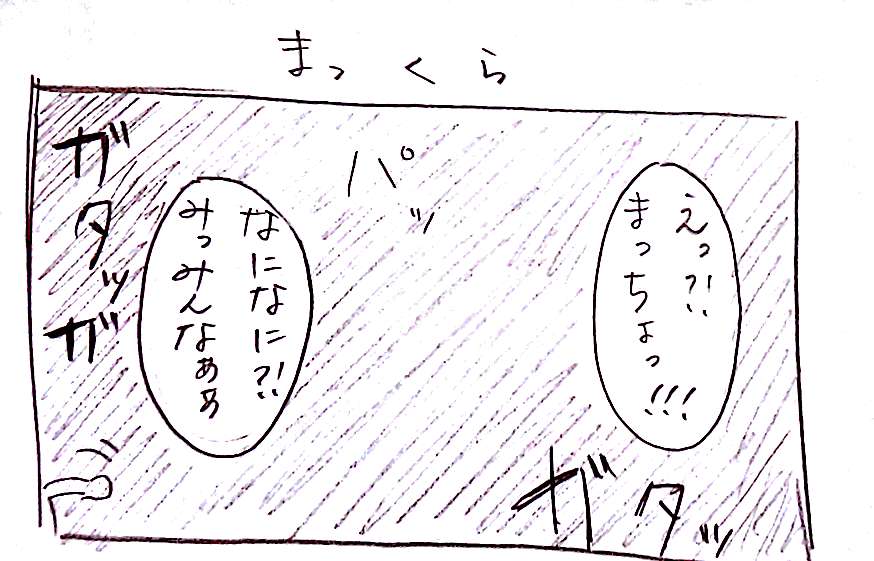 まっくら
えっ?!
まっちょっ!!!
パッ
なになに?!
みっみんなぁぁ
ガタッガ
ガタッ